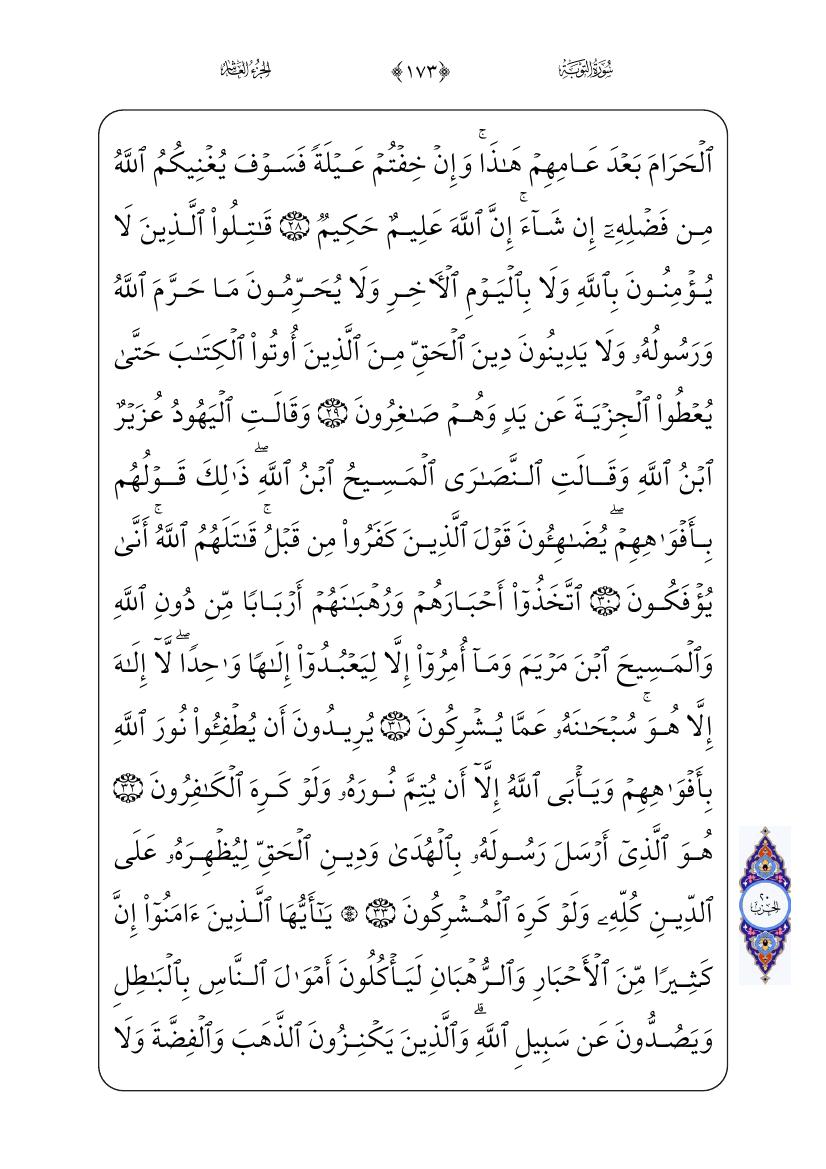 سُورَةُ التَّوۡبَةِ
﴿١٧٣﴾
الجُزءُ العَاشِر
ٱلۡحَرَامَ بَعۡدَ عَامِهِمۡ هَٰذَاۚ وَإِنۡ خِفۡتُمۡ عَيۡلَةٗ فَسَوۡفَ يُغۡنِيكُمُ ٱللَّهُ
مِن فَضۡلِهِۦٓ إِن شَآءَۚ إِنَّ ٱللَّهَ عَلِيمٌ حَكِيمٞ ۝٢٨ قَٰتِلُواْ ٱلَّذِينَ لَا
يُؤۡمِنُونَ بِٱللَّهِ وَلَا بِٱلۡيَوۡمِ ٱلۡأٓخِرِ وَلَا يُحَرِّمُونَ مَا حَرَّمَ ٱللَّهُ
وَرَسُولُهُۥ وَلَا يَدِينُونَ دِينَ ٱلۡحَقِّ مِنَ ٱلَّذِينَ أُوتُواْ ٱلۡكِتَٰبَ حَتَّىٰ
يُعۡطُواْ ٱلۡجِزۡيَةَ عَن يَدٖ وَهُمۡ صَٰغِرُونَ ۝٢٩ وَقَالَتِ ٱلۡيَهُودُ عُزَيۡرٌ
ٱبۡنُ ٱللَّهِ وَقَالَتِ ٱلنَّصَٰرَى ٱلۡمَسِيحُ ٱبۡنُ ٱللَّهِۖ ذَٰلِكَ قَوۡلُهُم
بِأَفۡوَٰهِهِمۡۖ يُضَٰهِـُٔونَ قَوۡلَ ٱلَّذِينَ كَفَرُواْ مِن قَبۡلُۚ قَٰتَلَهُمُ ٱللَّهُۚ أَنَّىٰ
يُؤۡفَكُونَ ۝٣٠ ٱتَّخَذُوٓاْ أَحۡبَارَهُمۡ وَرُهۡبَٰنَهُمۡ أَرۡبَابٗا مِّن دُونِ ٱللَّهِ
وَٱلۡمَسِيحَ ٱبۡنَ مَرۡيَمَ وَمَآ أُمِرُوٓاْ إِلَّا لِيَعۡبُدُوٓاْ إِلَٰهٗا وَٰحِدٗاۖ لَّآ إِلَٰهَ
إِلَّا هُوَۚ سُبۡحَٰنَهُۥ عَمَّا يُشۡرِكُونَ ۝٣١ يُرِيدُونَ أَن يُطۡفِـُٔواْ نُورَ ٱللَّهِ
بِأَفۡوَٰهِهِمۡ وَيَأۡبَى ٱللَّهُ إِلَّآ أَن يُتِمَّ نُورَهُۥ وَلَوۡ كَرِهَ ٱلۡكَٰفِرُونَ ۝٣٢
هُوَ ٱلَّذِيٓ أَرۡسَلَ رَسُولَهُۥ بِٱلۡهُدَىٰ وَدِينِ ٱلۡحَقِّ لِيُظۡهِرَهُۥ عَلَى
ٱلدِّينِ كُلِّهِۦ وَلَوۡ كَرِهَ ٱلۡمُشۡرِكُونَ ۝٣٣ ۞ يَٰٓأَيُّهَا ٱلَّذِينَ ءَامَنُوٓاْ إِنَّ
كَثِيرٗا مِّنَ ٱلۡأَحۡبَارِ وَٱلرُّهۡبَانِ لَيَأۡكُلُونَ أَمۡوَٰلَ ٱلنَّاسِ بِٱلۡبَٰطِلِ
وَيَصُدُّونَ عَن سَبِيلِ ٱللَّهِۗ وَٱلَّذِينَ يَكۡنِزُونَ ٱلذَّهَبَ وَٱلۡفِضَّةَ وَلَا
٢٠
الحزب